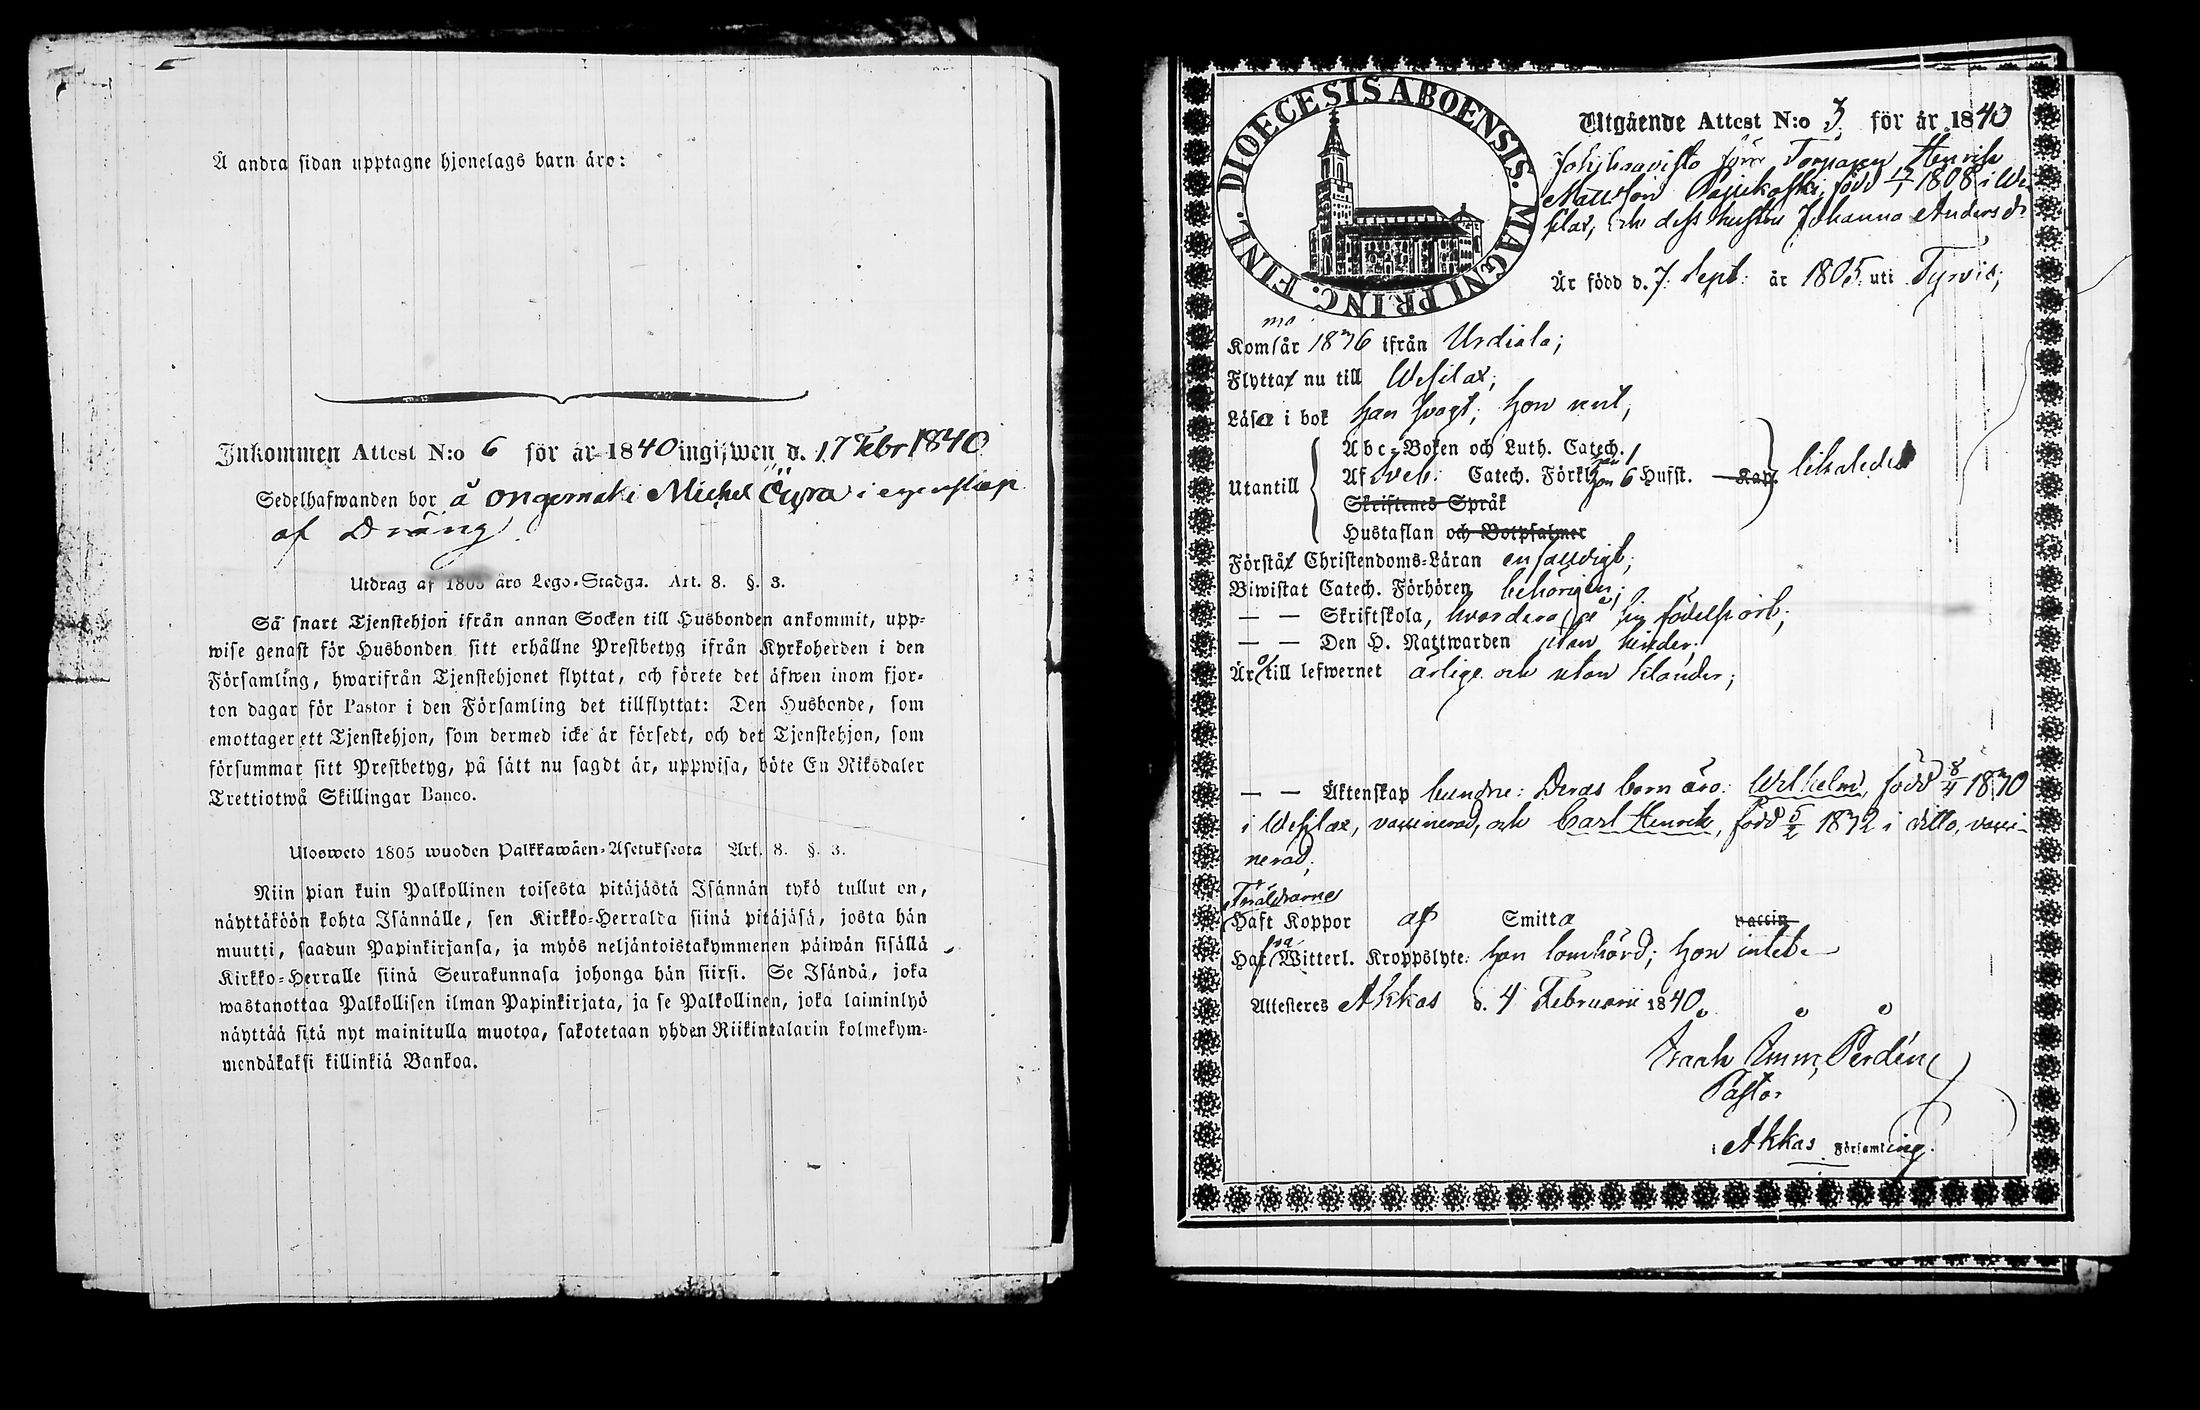 Å andra sidan upptagne hjonelags barn äro:
Inkommen Attest N:o 6 för år 1840 ingifwen d. 17 Febr 1840
Sedelhafwanden bor å ongemaki Michel Öyra i egenskap
af Dräng
Utdrag af 1805 års Lego-Stadga. Art. 8. §. 3.
Så snart Tjenstehjon ifrån annan Socken till Husbonden ankommit, upp-
wise genast för Husbonden sitt erhållne Prestbetyg ifrån Kyrkoherden i den
Församling, hwarifrån Tjenstehjonet flyttat, och förete det äfwen inom fjor-
ton dagar för Pastor i den Församling det tillflyttat: Den Husbonde, som
emottager ett Tjenstehjon, som dermed icke är försedt, och det Tjenstehjon, som
försummar sitt Prestbetyg, på sätt nu sagdt är, uppwisa, böte En Riksdaler
Trettiotwå Skillingar Banco.
Ulosweto 1805 wuoden Palkkawäen-Asetuksesta Art. 8. §. 3.
Niin pian kuin Palkollinen toisesta pitäjästä Isännän tykö tullut on,
näyttäköön kohta Isännälle, sen Kirkko-Herralda siinä pitäjäsä, josta hän
muutti, saadun Papinkirjansa, ja myös neljäntoistakymmenen päiwän sisällä
Kirkko-Herralle siinä Seurakunnasa johonga hän siirsi. Se Isändä, joka
wastanottaa Palkollisen ilman Papinkirjata, ja se Palkollinen, joka laiminlyö
näyttää sitä nyt mainitulla muotoa, sakotetaan yhden Riikintalarin kolmekym-
mendäkaksi killinkiä Bankoa.
DIOECESIS ABOENSIS. MAGNI PRINC. FINL.
Utgående Attest N:o 3 för år 1840
förre Torparen Henrik
Mattsson född 1808 i We-
silax, och dess hustru Johanna Andersdr
Är född d. 7 Sept: år 1805 uti Tyrvis;
mo
Kom år 1836 ifrån Urdiala;
Flytta nu till Wesilax;
Läsa i bok han svagt; hon rent,
Utantill
Abc-Boken och Luth. Catech.
Af Sveb: Catech. Förkl. han 1 hon 6 Hufst. Kap. likaledes
Skriftenes Språk
Hustaflan och Botpsalmer
Förstå Christendoms-Läran enfalldigt;
Biwistat Catech. Förhören behörigen;
— — Skriftskola, hvardera på sin födelseort;
— — Den H. Nattwarden utan hinder;
Äro till lefwernet ärlige och utan klander;
— — Äktenskap bundne: Deras barn äro: Wilhelm, född 8/4 1830
i Wesilax, vaccinerad, och Carl Henrik, född 5/2 1832 i ditto, vacci-
nerad;
Föräldrarne
Haft Koppor af Smitta vaccin
Hafva Witterl. Kroppslyte: han lomhörd; hon intet.—
Attesteres Akkas d. 4 Februarii 1840.
Isaak Emm, Perdén
Pastor
i Akkas Församling.